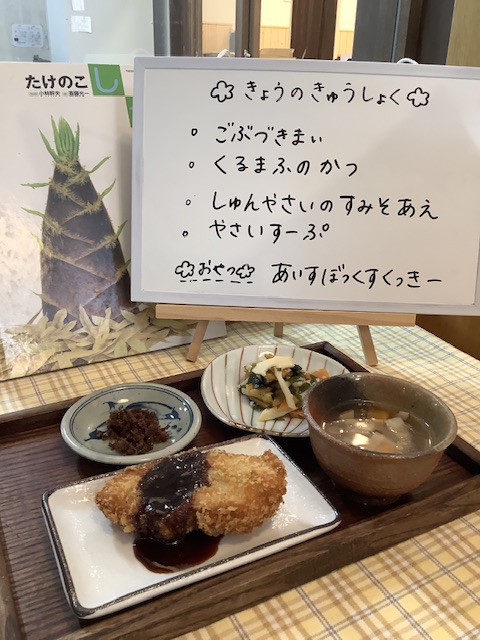 たけのこ
し
小林幹夫
斎藤光一
きょうのきゅうしょく
ごぶづきまい
くるまふのかつ
しゅんやさいのすみそあえ
やさいすーぷ
おやつ あいすぼっくすくっきー